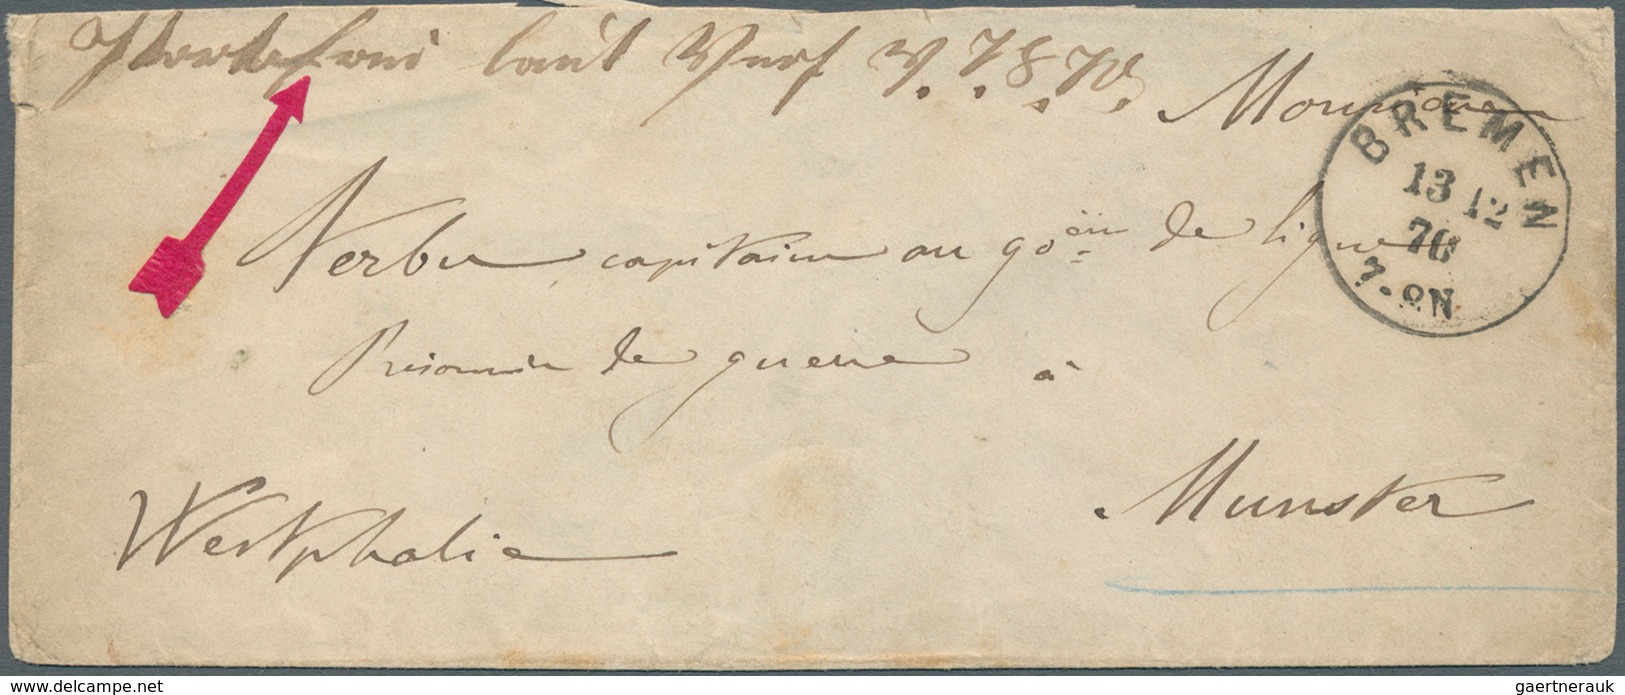 Portofrei laut Verf v. 7. 8. 70.
Monsieur
BREMEN
13 12
70
7-8N
Verbu, capitaine au 90ème de ligne
Prisonnier de guerre à
Munster
Westphalie
www.delcampe.net
gaertnerauk